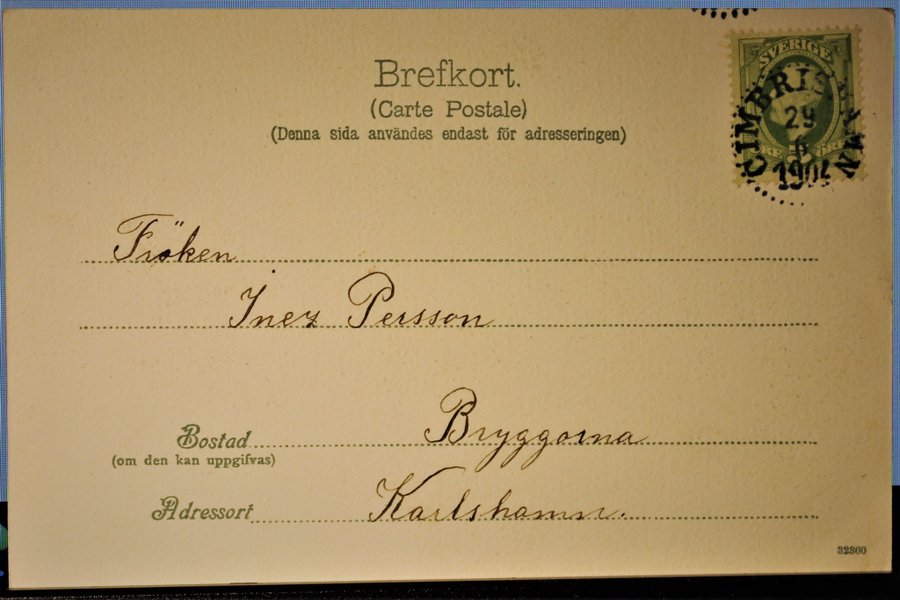 Brefkort.
(Carte Postale)
(Denna sida användes endast för adresseringen)
SVERIGE
CIMBRISHAMN
29
6
1904
5
ÖRE ÖRE
Fröken
Inez Persson
Bostad Bryggorna
(om den kan uppgifvas)
Adressort Karlshamn.
32360